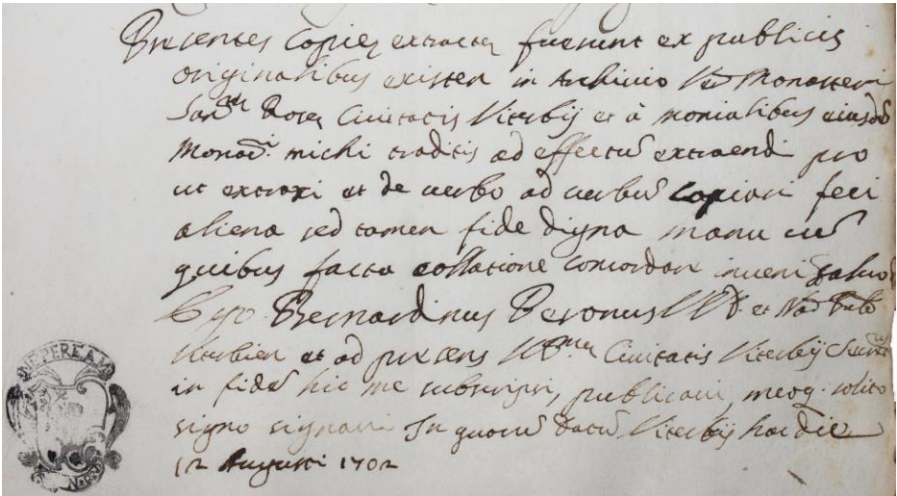 Presentes Copiæ extractæ fuerunt ex publicis
originalibus existen in Archivio Ven Monasterij
Sanctæ Rosæ Civitatis Viterbij et à monialibus eiusdē
Monarij michi traditis ad effectū extraendi pro
ut extraxi et de verbo ad verbū copiari feci
aliena sed tamen fide digna manu cū
quibus facta collatione concordare inveni salvo
Ego Bernardinus Beronus et Not
Viterbien et ad præsens Civitatis Viterbij Secret
in fidē hic me subscripsi, publicavi, meoq. solito
signo signavi In quorū Datū Viterbij hac die
12 Augusti 1702